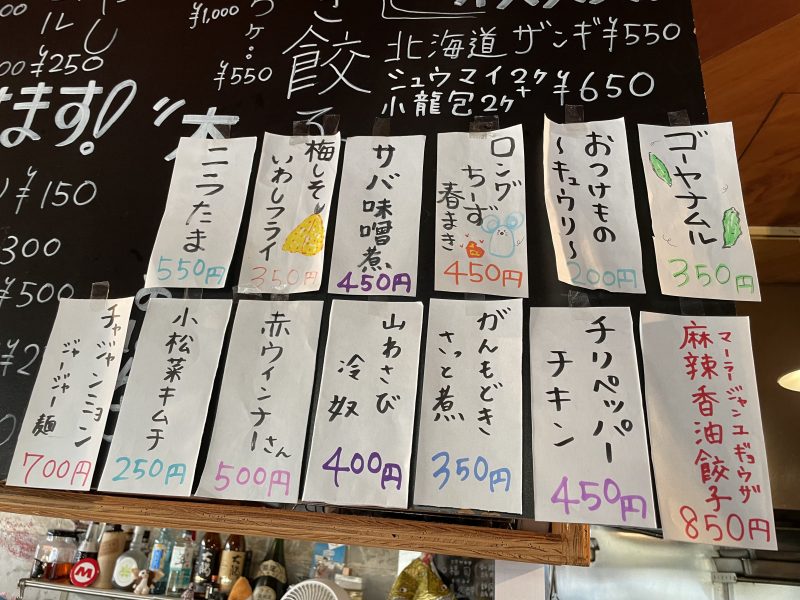 ¥1,000
¥550
¥250
餃
北海道 ザンギ ¥550
シュウマイ2ケ+
小龍包2ケ
¥650
ます!
¥150
300
¥500
ニラたま
550円
梅しそ
いわしフライ
350円
サバ味噌煮
450円
ロング
ちーず
春まき
450円
おつけもの
~キュウリ~
200円
ゴーヤナムル
350円
チャジャンミョン
ジャージャー麺
700円
小松菜キムチ
250円
赤ウィンナーさん
500円
山わさび
冷奴
400円
がんもどき
さっと煮
350円
チリペッパー
チキン
450円
マーラージャンユギョウザ
麻辣香油餃子
850円